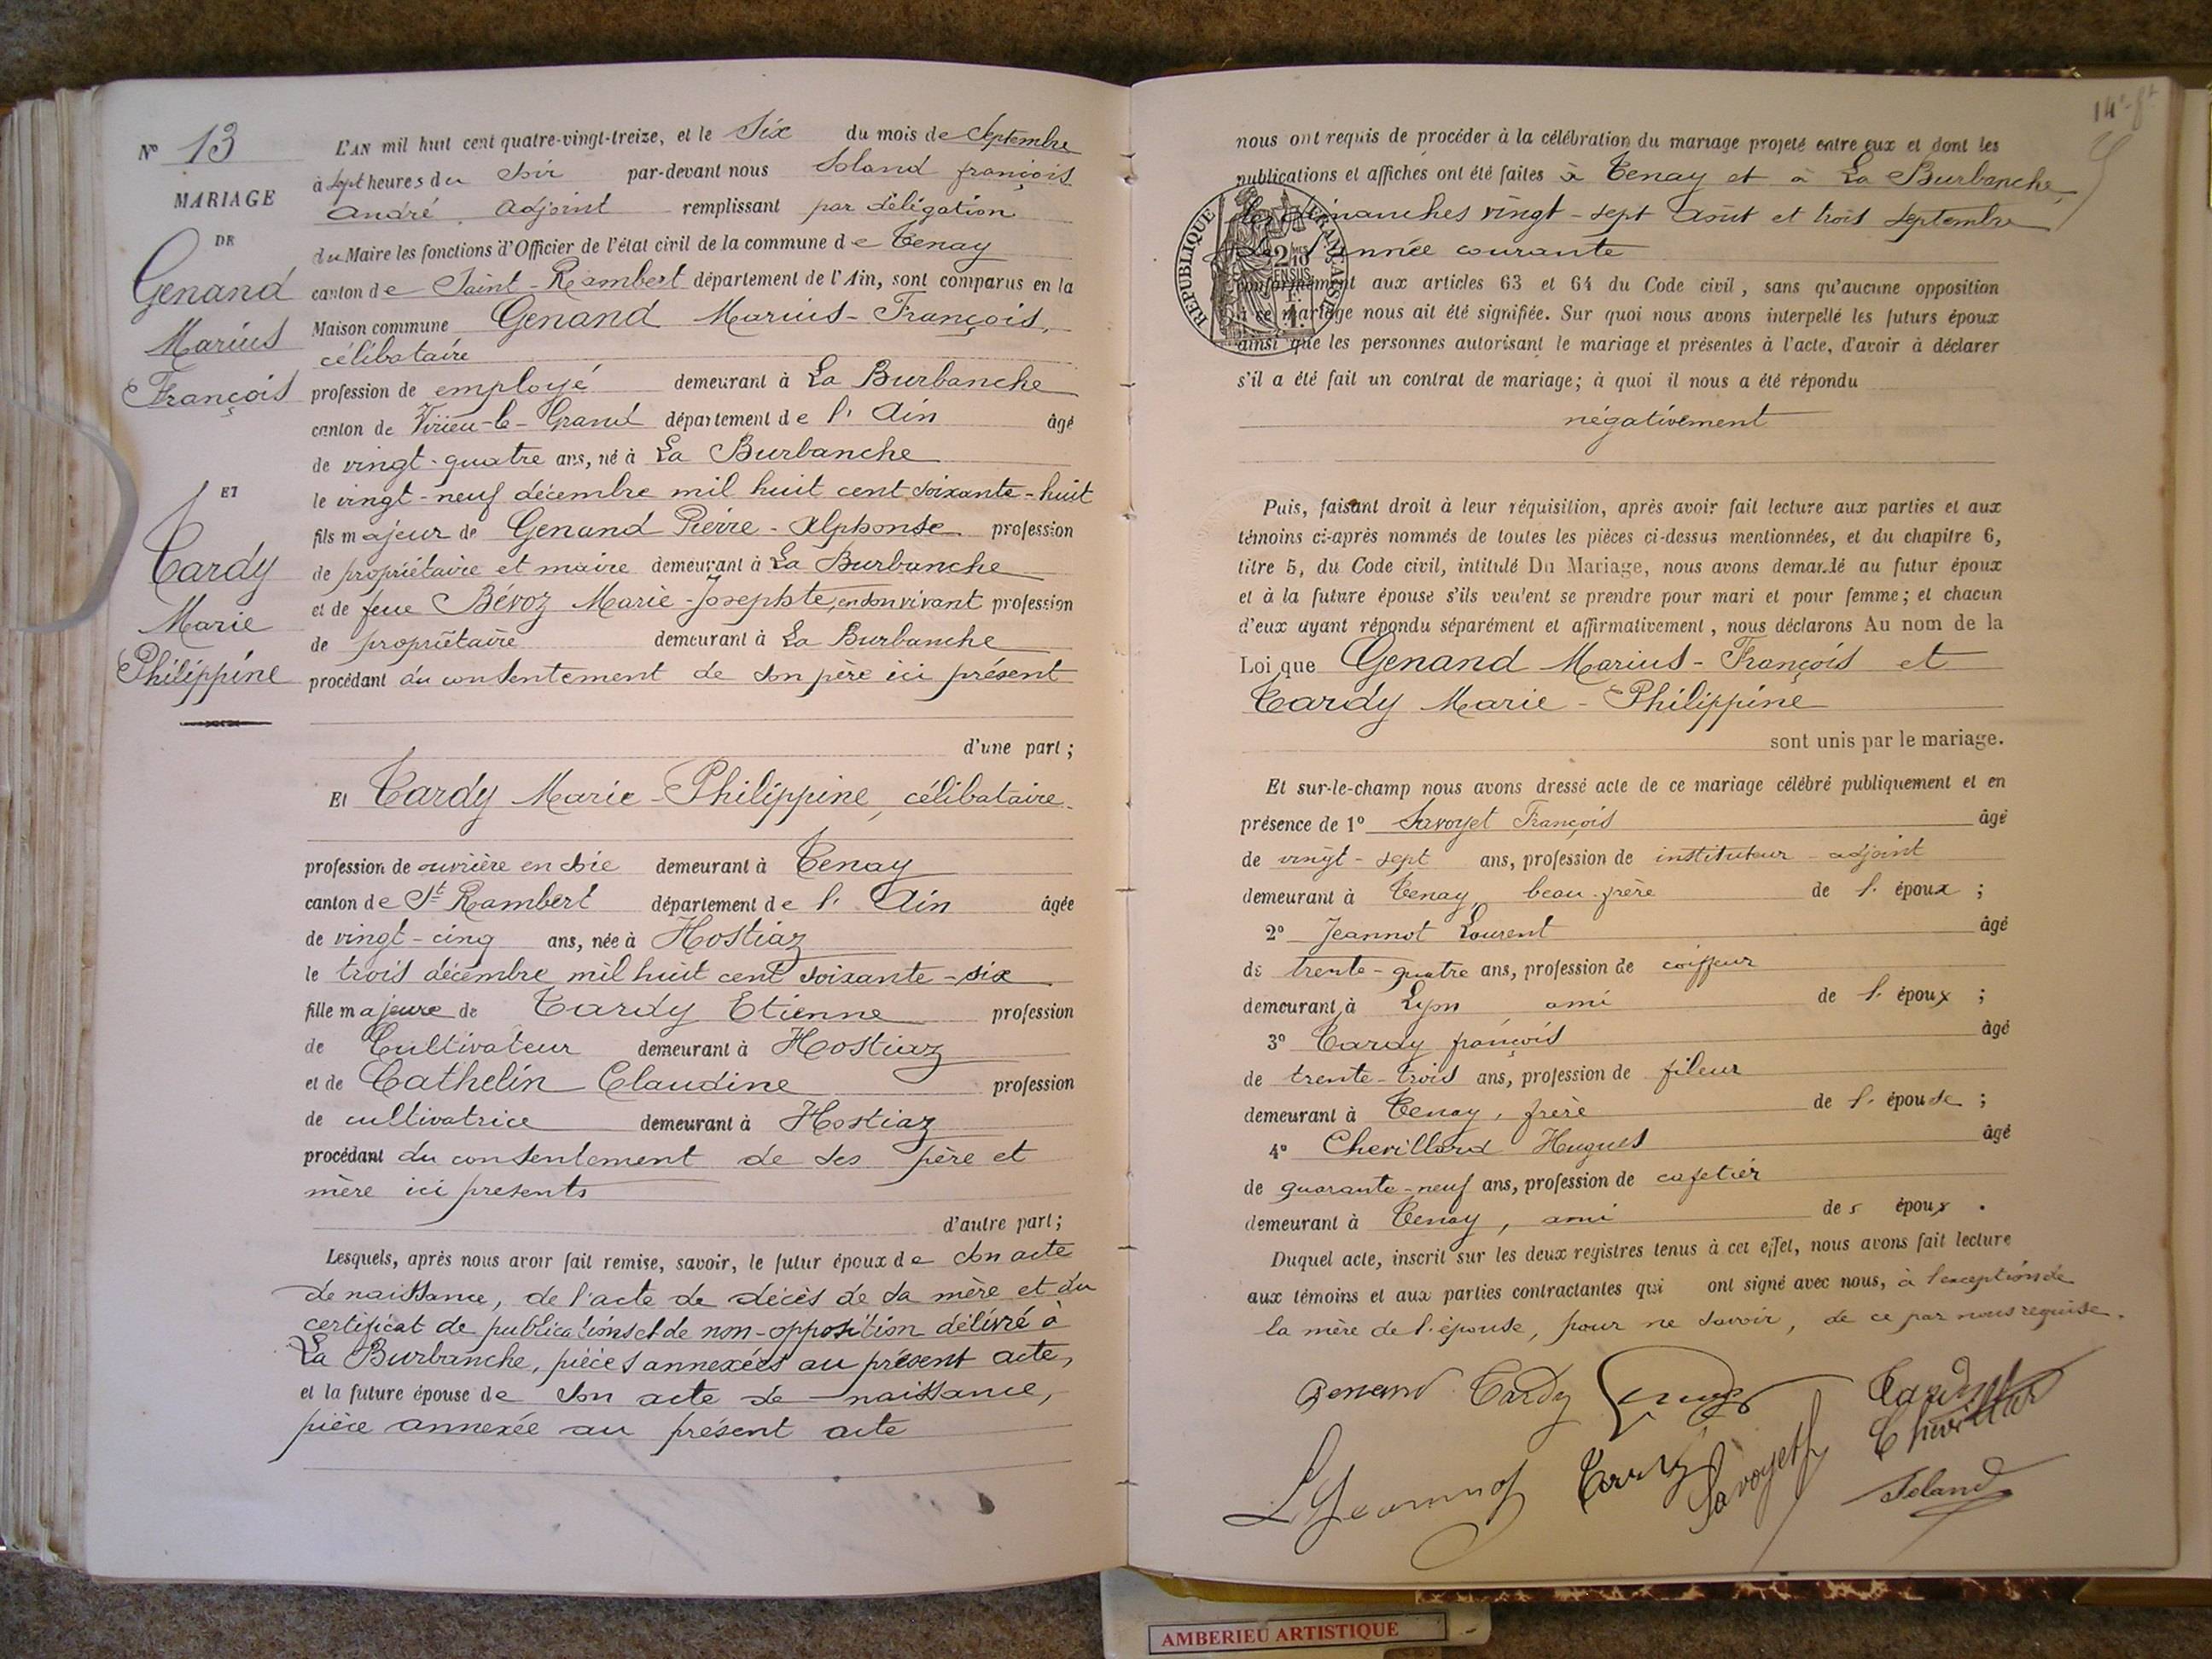 N° 13
MARIAGE
DE
Genand
Marius
François
ET
Tardy
Marie
Philippine
L'AN mil huit cent quatre-vingt-treize, et le Six du mois de Septembre
à sept heures du soir par-devant nous Soland françois
André Adjoint remplissant par délégation
du Maire les fonctions d'Officier de l'état civil de la commune de Tenay
canton de Saint-Rambert département de l'Ain, sont comparus en la
Maison commune Genand Marius-François,
célibataire
profession de employé demeurant à La Burbanche
canton de Virieu-le-Grand département de l'Ain âgé
de vingt-quatre ans, né à La Burbanche
le vingt-neuf décembre mil huit cent soixante-huit
fils majeur de Genand Pierre-Alphonse profession
de propriétaire et maire demeurant à La Burbanche
et de feue Bévoz Marie-Josephte, en son vivant profession
de propriétaire demeurant à La Burbanche
procédant du consentement de son père ici présent
d'une part ;
Et Tardy Marie-Philippine, célibataire
profession de ouvrière en soie demeurant à Tenay
canton de St Rambert département de l'Ain âgée
de vingt-cinq ans, née à Hostiaz
le trois décembre mil huit cent soixante-six
fille majeure de Tardy Etienne profession
de Cultivateur demeurant à Hostiaz
et de Cathelin Claudine profession
de cultivatrice demeurant à Hostiaz
procédant du consentement de ses père et
mère ici présents
d'autre part ;
Lesquels, après nous avoir fait remise, savoir, le futur époux de son acte
de naissance, de l'acte de décès de sa mère et du
certificat de publications et de non-opposition délivré à
La Burbanche, pièces annexées au présent acte,
et la future épouse de son acte de naissance,
pièce annexée au présent acte
nous ont requis de procéder à la célébration du mariage projeté entre eux et dont les
publications et affiches ont été faites à Tenay et à La Burbanche
les dimanches vingt-sept Août et trois septembre
de l'année courante
RÉPUBLIQUE FRANÇAISE
conformément aux articles 63 et 64 du Code civil, sans qu'aucune opposition
à ce mariage nous ait été signifiée. Sur quoi nous avons interpellé les futurs époux
ainsi que les personnes autorisant le mariage et présentes à l'acte, d'avoir à déclarer
s'il a été fait un contrat de mariage; à quoi il nous a été répondu
négativement
Puis, faisant droit à leur réquisition, après avoir fait lecture aux parties et aux
témoins ci-après nommés de toutes les pièces ci-dessus mentionnées, et du chapitre 6,
titre 5, du Code civil, intitulé Du Mariage, nous avons demandé au futur époux
et à la future épouse s'ils veulent se prendre pour mari et pour femme; et chacun
d'eux ayant répondu séparément et affirmativement, nous déclarons Au nom de la
Loi que Genand Marius-François et
Tardy Marie-Philippine
sont unis par le mariage.
Et sur-le-champ nous avons dressé acte de ce mariage célébré publiquement et en
présence de 1° Savoyet François âgé
de vingt-sept ans, profession de instituteur-adjoint
demeurant à Tenay, beau-frère de l'époux ;
2° Jeannot Laurent âgé
de trente-quatre ans, profession de coiffeur
demeurant à Lyon ami de l'époux ;
3° Tardy françois âgé
de trente-trois ans, profession de fileur
demeurant à Tenay, frère de l'épouse ;
4° Chevillard Hugues âgé
de quarante-neuf ans, profession de cafetier
demeurant à Tenay, ami des époux.
Duquel acte, inscrit sur les deux registres tenus à cet effet, nous avons fait lecture
aux témoins et aux parties contractantes qui ont signé avec nous, à l'exception de
la mère de l'épouse, pour ne savoir, de ce par nous requise.
Genand Tardy
Tardy
Chevillard
LJeannot Tardy Savoyet
Soland
AMBERIEU ARTISTIQUE